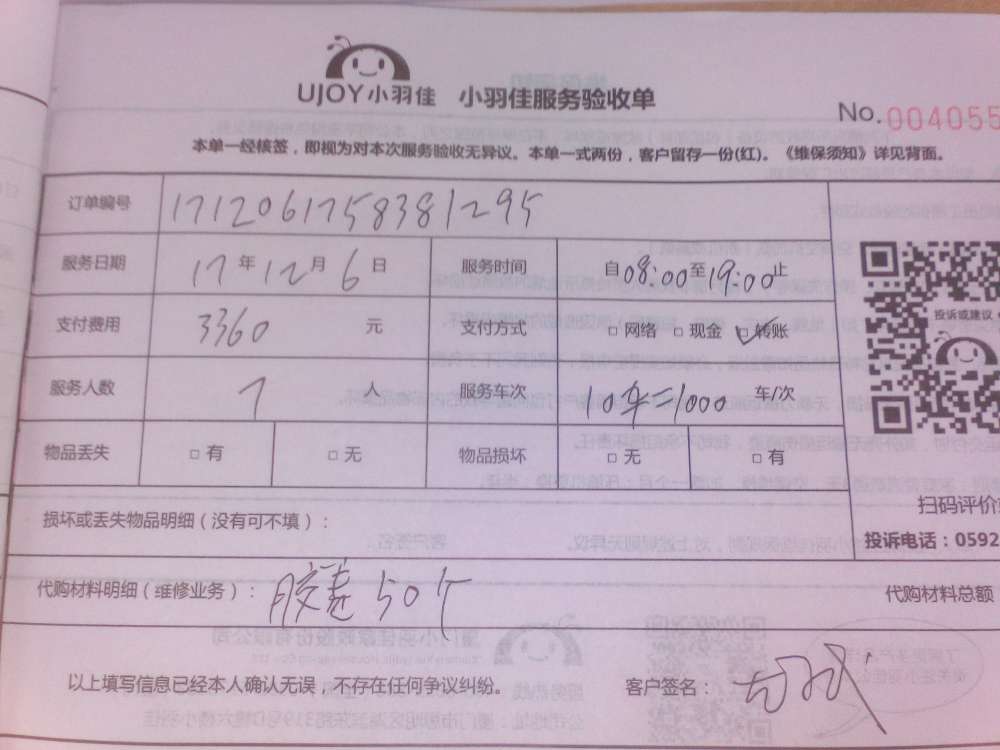 UJOY小羽佳 小羽佳服务验收单
No. 004055
本单一经核签，即视为对本次服务验收无异议。本单一式两份，客户留存一份(红)。《维保须知》详见背面。
订单编号 1712061758381295
服务日期 17年12月6日 服务时间 自08:00至19:00止
投诉或建议
支付费用 3360 元 支付方式 □网络 □现金 ☑转账
服务人数 7 人 服务车次 10车=1000 车/次
物品丢失 □有 □无 物品损坏 □无 □有
扫码评价
损坏或丢失物品明细（没有可不填）：
投诉电话：0592
代购材料明细（维修业务）： 胶袋50个 代购材料总额
以上填写信息已经本人确认无误，不存在任何争议纠纷。 客户签名：